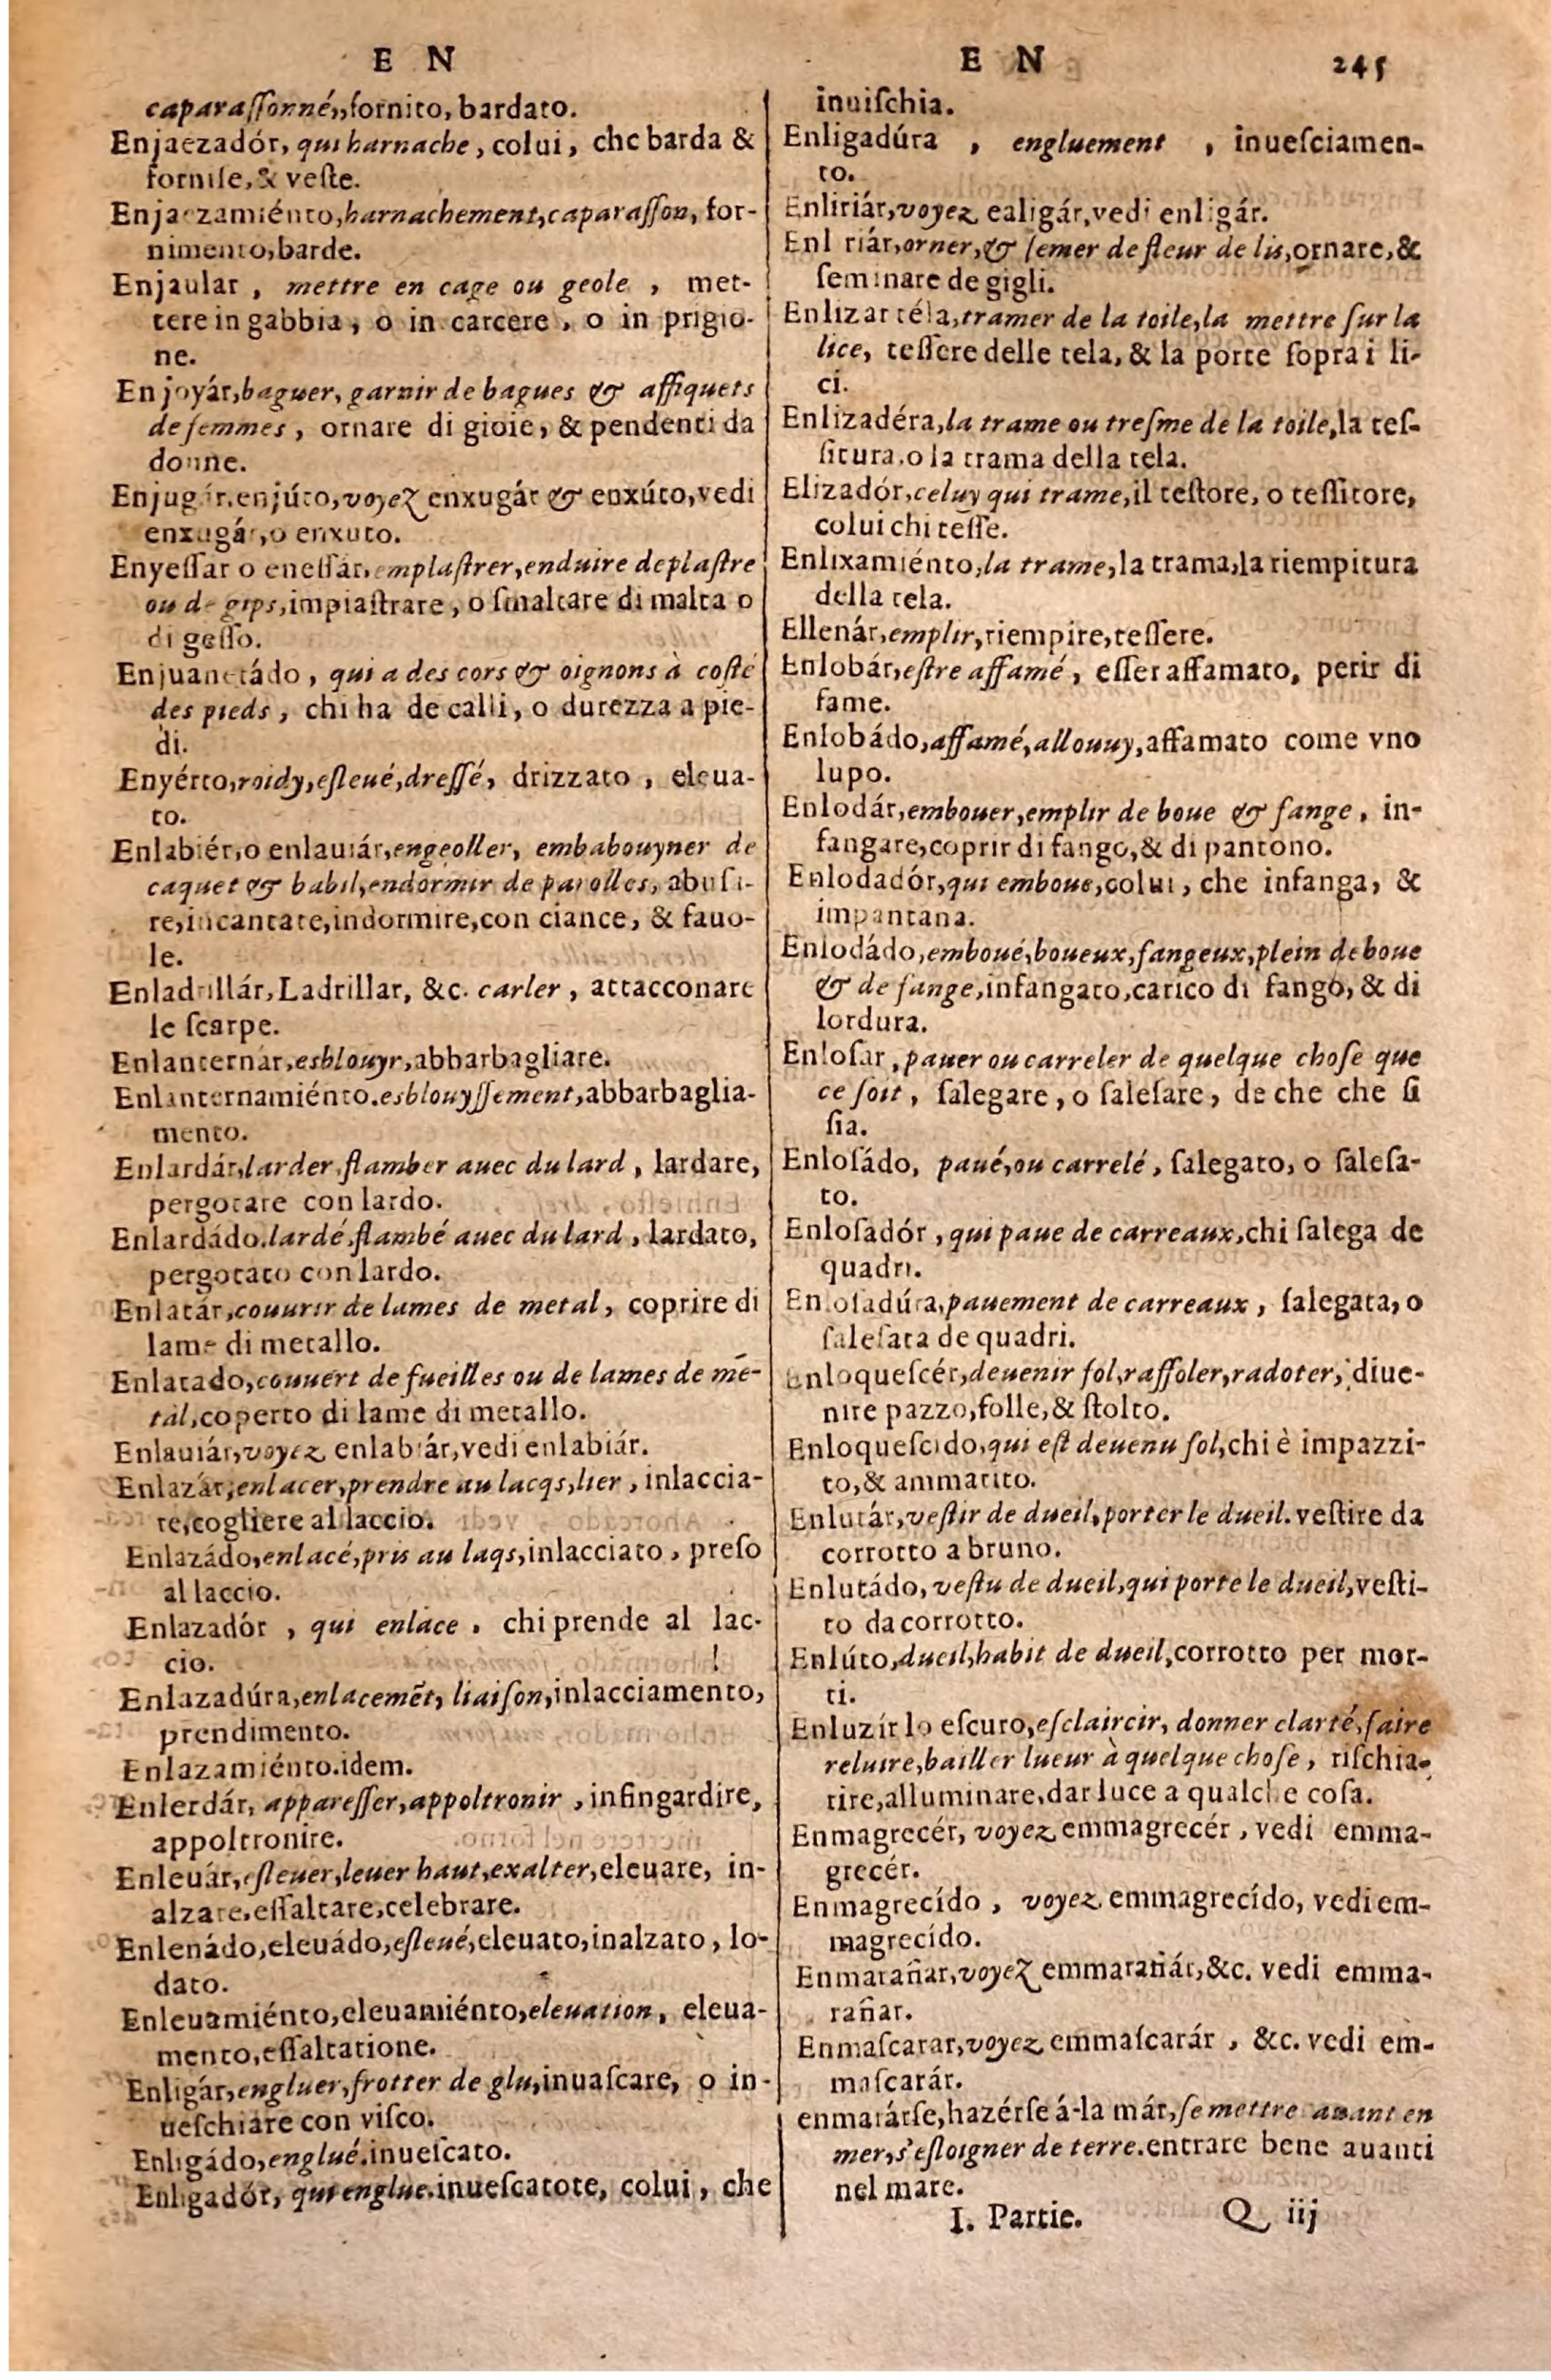 E N
caparaſſonné, fornito, bardato.
Enjaezadór, qui harnache, colui, che barda &
forniſe, & veſte.
Enjaezamiénto, harnachement, caparaſſon, for-
nimento, barde.
Enjaular, mettre en cage ou geole, met-
tere in gabbia, o in carcere, o in prigio-
ne.
Enjoyár, baguer, garnir de bagues & affiquets
de femmes, ornare di gioie, & pendenti da
donne.
Enjugár, enjúto, voyez enxugár & enxúto, vedi
enxugár, o enxuto.
Enyeſſar o eneſſár, emplaſtrer, enduire de plaſtre
ou de gips, impiaſtrare, o ſmaltare di malta o
di geſſo.
Enjuanetádo, qui a des cors & oignons à coſté
des pieds, chi ha de calli, o durezza a pie-
di.
Enyérto, roidy, eſleué, dreſſé, drizzato, eleua-
to.
Enlabiér, o enlauiár, engeoller, embabouyner de
caquet & babil, endormir de parolles, abuſi-
re, incantare, indormire, con ciance, & fauo-
le.
Enladrillár, Ladrillar, &c. carler, attacconare
le ſcarpe.
Enlanternár, esblouyr, abbarbagliare.
Enlanternamiénto. esblouyſſement, abbarbaglia-
mento.
Enlardár, larder, flamber auec du lard, lardare,
pergotare con lardo.
Enlardádo. lardé, flambé auec du lard, lardato,
pergotato con lardo.
Enlatár, couurir de lames de metal, coprire di
lame di metallo.
Enlatado, couuert de fueilles ou de lames de me-
tal, coperto di lame di metallo.
Enlauiár, voyez enlabiár, vedi enlabiár.
Enlazár, enlacer, prendre au lacqs, lier, inlaccia-
re, cogliere al laccio.
Enlazádo, enlacé, pris au laqs, inlacciato, preſo
al laccio.
Enlazadór, qui enlace. chi prende al lac-
cio.
Enlazadúra, enlacemẽt, liaiſon, inlacciamento,
prendimento.
Enlazamiénto. idem.
Enlerdár, appareſſer, appoltronir, infingardire,
appoltronire.
Enleuár, eſleuer, leuer haut, exalter, eleuare, in-
alzare, eſſaltare, celebrare.
Enlenádo, eleuádo, eſleué, eleuato, inalzato, lo-
dato.
Enleuamiénto, eleuamiénto, eleuation, eleua-
mento, eſſaltatione.
Enligár, engluer, frotter de glu, inuaſcare, o in-
ueſchiare con viſco.
Enligádo, englué. inueſcato.
Enligadór, qui englue. inueſcatote, colui, che
E N 245
inuiſchia.
Enligadúra, engluement, inueſciamen-
to.
Enliriár, voyez ealigár, vedi enligár.
Enl riár, orner, & ſemer de fleur de lis, ornare, &
ſeminare de gigli.
Enlizar téla, tramer de la toile, la mettre ſur la
lice, teſſere delle tela, & la porte ſopra i li-
ci.
Enlizadéra, la trame ou treſme de la toile, la teſ-
ſitura, o la trama della tela.
Elizadór, celuy qui trame, il teſtore, o teſſitore,
colui chi teſſe.
Enlixamiénto, la trame, la trama, la riempitura
della tela.
Ellenár, emplir, riempire, teſſere.
Enlobár, eſtre affamé, eſſer affamato, perir di
fame.
Enlobádo, affamé, allouuy, affamato come vno
lupo.
Enlodár, embouer, emplir de boue & fange, in-
fangare, coprir di fango, & di pantono.
Enlodadór, qui emboue, colui, che infanga, &
impantana.
Enlodádo, emboué, boueux, fangeux, plein de boue
& de fange, infangato, carico di fango, & di
lordura.
Enloſar, pauer ou carreler de quelque choſe que
ce ſoit, ſalegare, o ſaleſare, de che che ſi
ſia.
Enloſádo, paué, ou carrelé, ſalegato, o ſaleſa-
to.
Enloſadór, qui paue de carreaux, chi ſalega de
quadri.
Enloſadúra, pauement de carreaux, ſalegata, o
ſaleſata de quadri.
Enloqueſcér, deuenir fol, raſſoler, radoter, diue-
nire pazzo, folle, & ſtolto.
Enloqueſcido, qui eſt deuenu fol, chi è impazzi-
to, & ammatito.
Enlutár, veſtir de dueil, porter le dueil. veſtire da
corrotto a bruno.
Enlutádo, veſtu de dueil, qui porte le dueil, veſti-
to da corrotto.
Enlúto, dueil, habit de dueil, corrotto per mor-
ti.
Enluzír lo eſcuro, eſclaircir, donner clarté, faire
reluire, bailler lueur à quelque choſe, riſchia-
rire, alluminare, dar luce a qualche coſa.
Enmagrecér, voyez emmagrecér, vedi emma-
grecér.
Enmagrecído, voyez emmagrecído, vedi em-
magrecído.
Enmarañar, voyez emmarañár, &c. vedi emma-
rañar.
Enmaſcarar, voyez emmaſcarár, &c. vedi em-
maſcarár.
enmarárſe, hazérſe á-la már, ſe mettre auant en
mer, s'eſloigner de terre. entrare bene auanti
nel mare.
I. Partie. Q iij